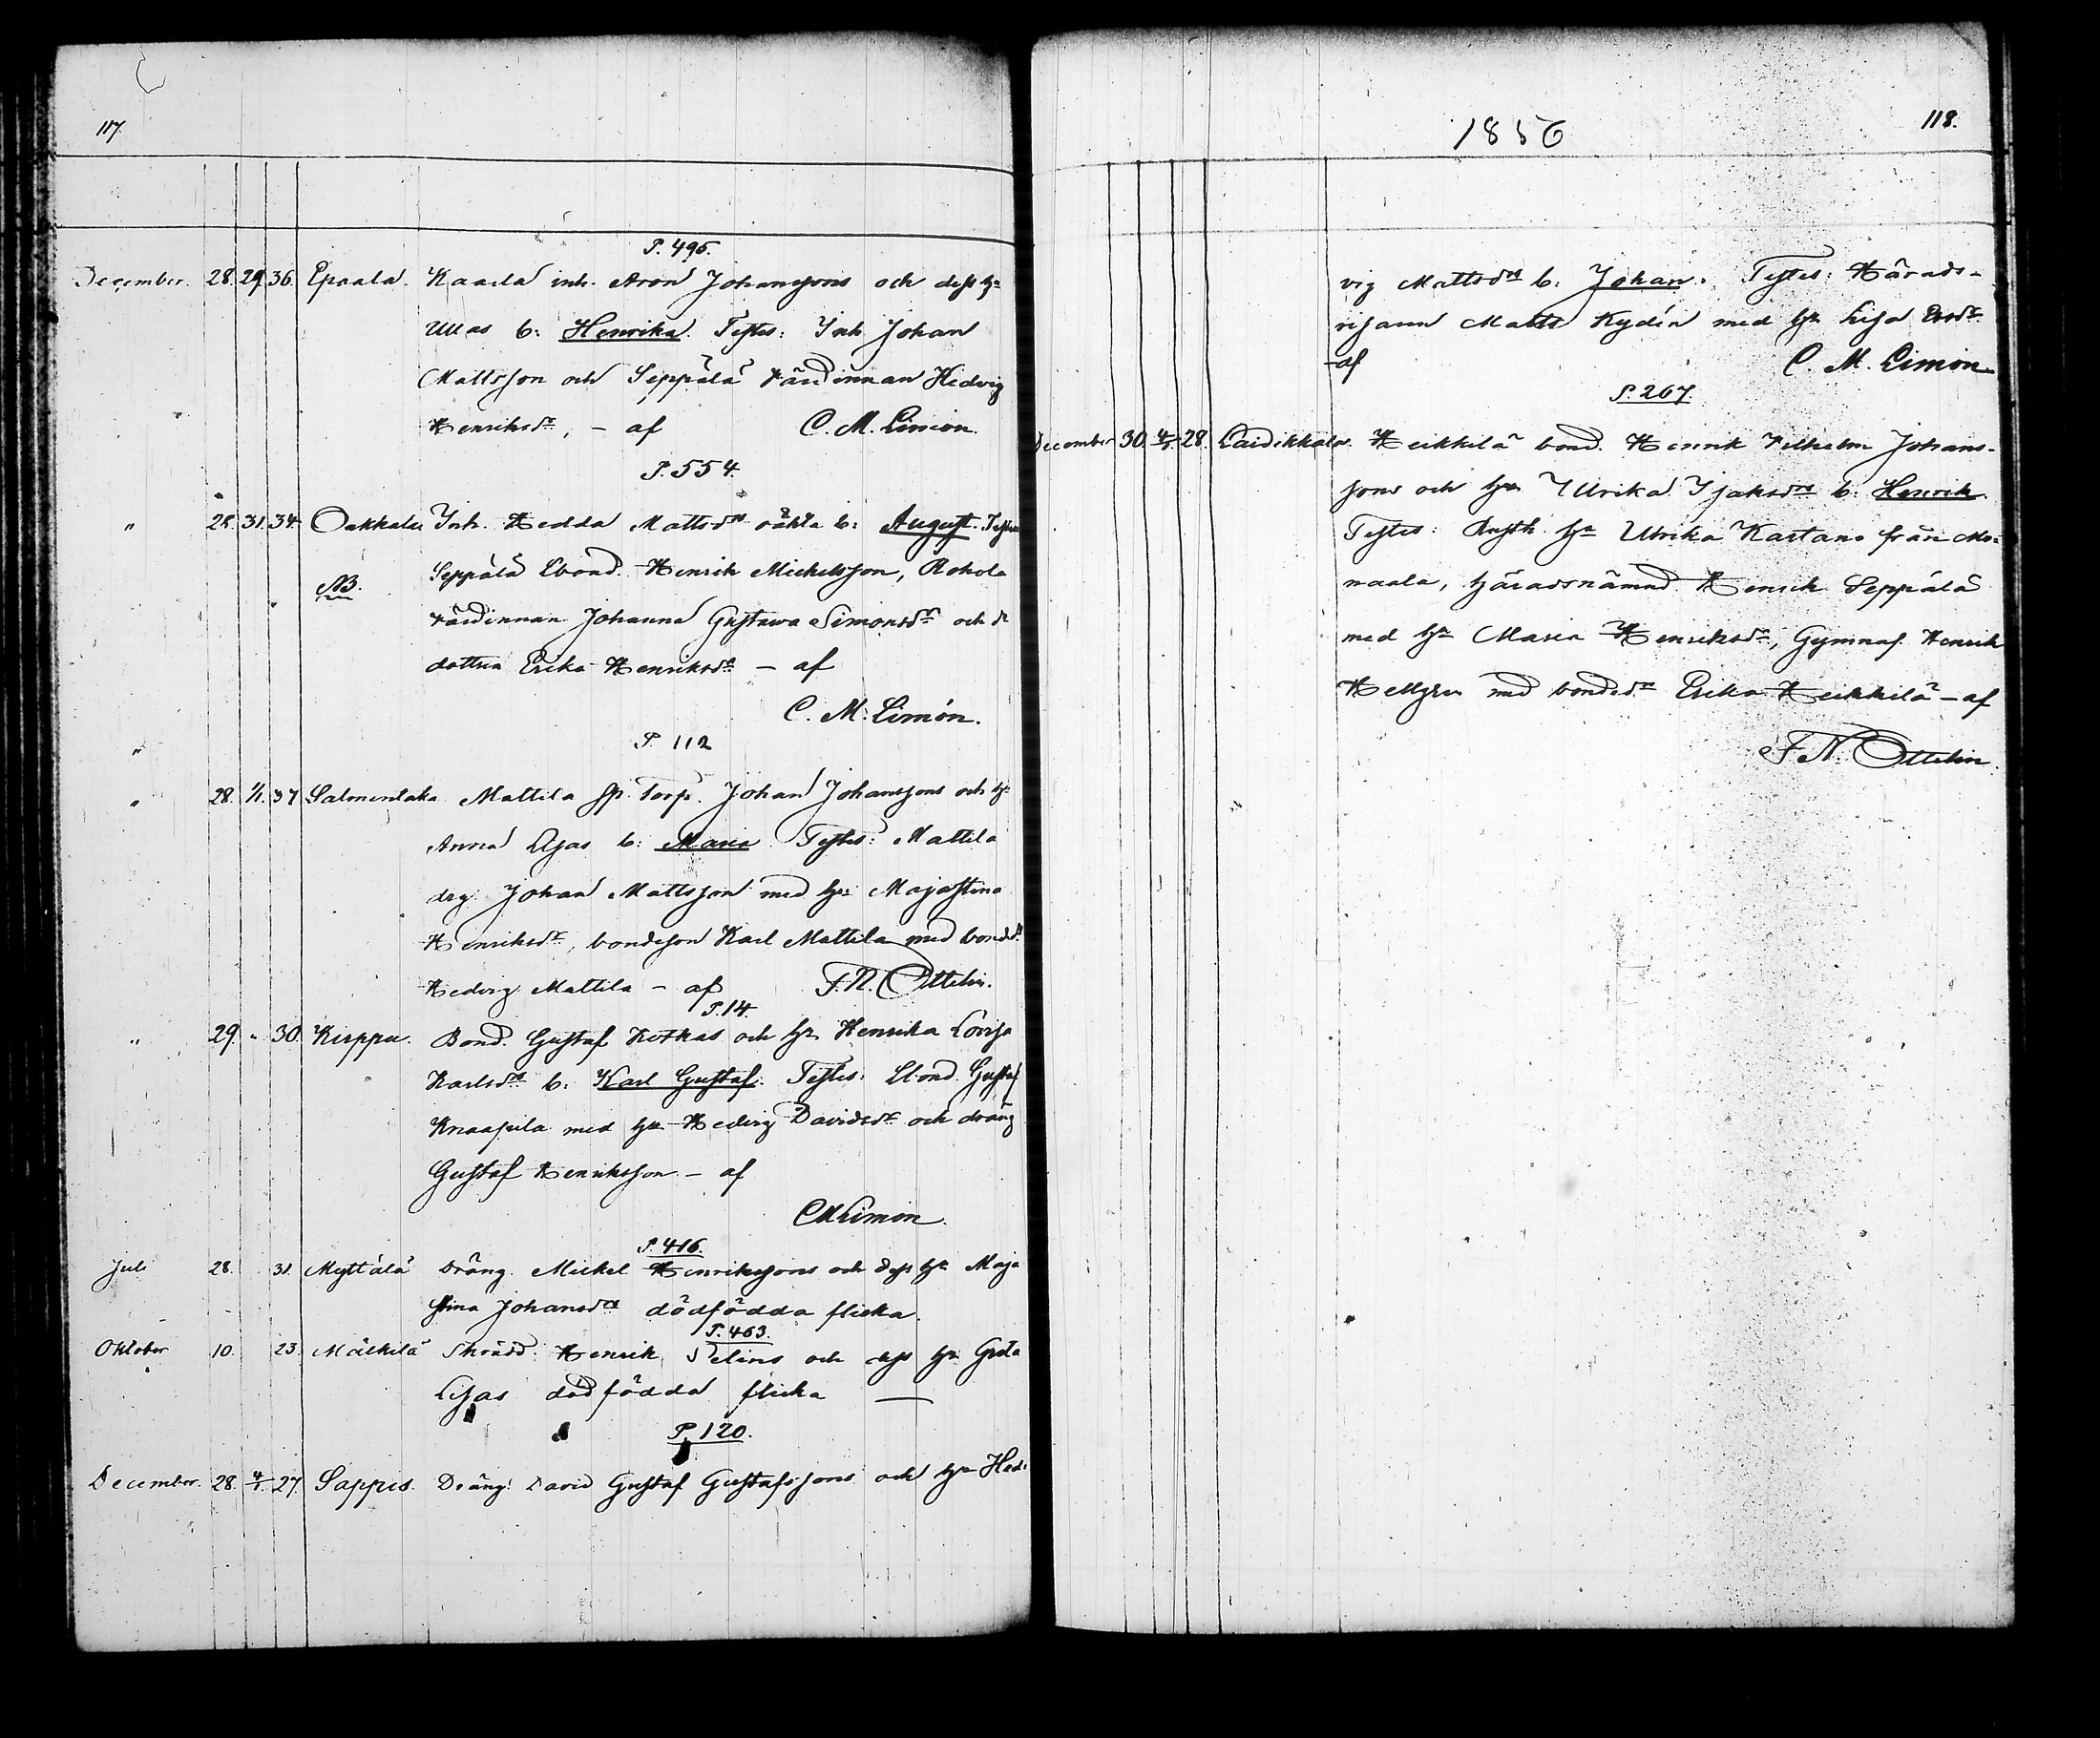 117.
P. 495.
December. 28. 29. 36. Epaala. Kaarla inh. Aron Johanssons och dess h:
Ullas b: Henrika. Testes: Inh. Johan
Mattsson och Seppälä värdinnan Hedvig
Henriksdr, – af C. M. Limon.
P. 554.
" 28. 31. 34. Oakkala Inh. Hedda Mattsdrs oäkta b: August. Testes
NB. Seppälä Bond. Henrik Michelsson, Rokola
värdinnan Johanna Gustava Simonsdr och
dottren Erika Henriksdr – af
C. M. Limón.
P. 112
" 28. 1/1. 37 Salmentaka Mattila Sp. Torp. Johan Johanssons och h:
Anna Lisas b: Maria Testes: Mattila
drg. Johan Mattsson med h: Majastina
Henriksdr, bondeson Karl Mattila med bonded:
Hedvig Mattila – af F. N. Ottelin.
P. 14.
" 29. " 30. Kirppu. Bond. Gustaf Kotkas och h: Henrika Lovisa
Karlsdrs b: Karl Gustaf. Testes: Bond. Gustaf
Knaapila med h: Hedvig Davidsdr och dräng
Gustaf Henriksson – af
CMLimon.
P. 416.
Juli 28. 31. Myttälä Dräng Mickel Henrikssons och dess h: Maja
Stina Johansdrs dödfödda flicka.
P. 463.
Oktober 10. 23. Mälkilä Skrädd. Henrik Velins och dess h: Greta
Lisas dödfödda flicka —
P. 120.
December. 28. 4/1. 27. Sappes. Dräng David Gustaf Gustafssons och h: Hed:
1856
118.
vig Mattsdrs b: Johan. Testes: Härads-
m Matts Rydén med h: Lisa Ersdr.
–af C. M. Limon
P. 267.
December 30. 4/1. 28. Laidikkala. Heikkilä bond. Henrik Vilhelm Johans-
sons och h: Ulrika Isaksdrs b: Henrik.
Testes: Rusth. h: Ulrika Kartano från
naala, häradsnämnd. Henrik Seppälä
med h: Maria Henriksdr, Gymnas. Henrik
Hellgren med bondedr Erika Heikkilä – af
F. N. Ottelin.